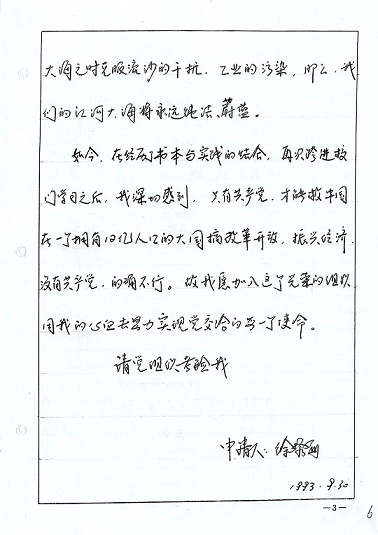 大海之时克服流沙的干扰，工业的污染，那么，我
们的江河大海将永远纯洁、蔚蓝。
如今，在经历了书本与实践的结合，再次跨进校
门学习之后，我深切感到，只有共产党，才能救中国
在一个拥有12亿人口的大国搞改革开放，振兴经济，
没有共产党，的确不行。故我愿加入这个光荣的组织
用我的心血去努力实现党交给的每一个使命。
请党组织考验我
申请人：徐
1993.9.30
—3—
6